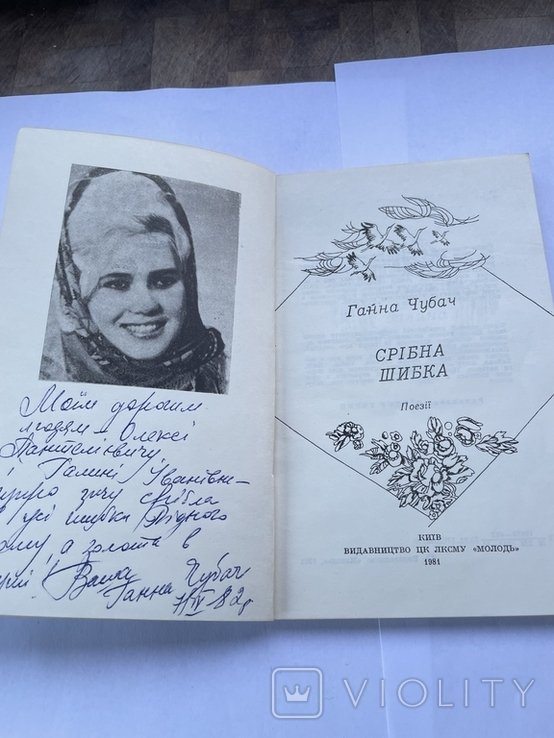 Моїм дорогим
людям – Олексі
Пантелієвичу
і Галині Іванівні –
щиро зичу світла
в усі шибки Рідного
дому, а золота в
Ваша Чубач
Ганна
Ганна Чубач
СРІБНА
ШИБКА
Поезії
КИЇВ
ВИДАВНИЦТВО ЦК ЛКСМУ «МОЛОДЬ»
1981
VIOLITY